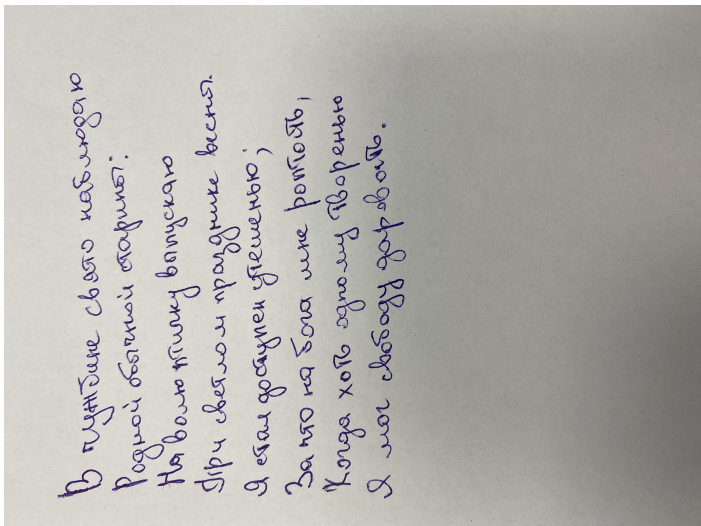 В чужбине свято наблюдаю
Родной обычной старины:
На волю птичку выпускаю
При светлом празднике весны.
Я стал доступен утешенью;
За что на бога мне роптать,
Когда хоть одному творенью
Я мог свободу даровать.